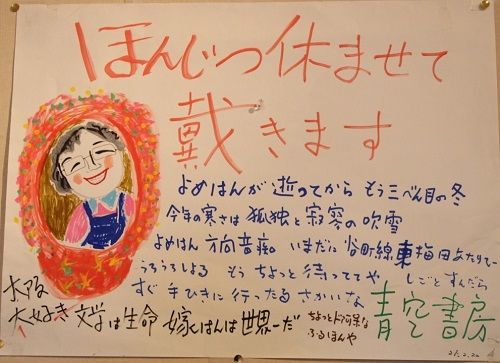 ほんじつ休ませて
戴きます
よめはんが逝ってから もう三べん目の冬
今年の寒さは孤独と寂寥の吹雪
よめはん方向音痴。いまだに谷町線東梅田あたりで
うろうろしよる もうちょっと待っててや しごとすんだら
すぐ手ひきに行ったるさかいな
大好き 文学は生命 嫁はんは世界一だ
ちょっとドアホな
ふるほんや
青空書房